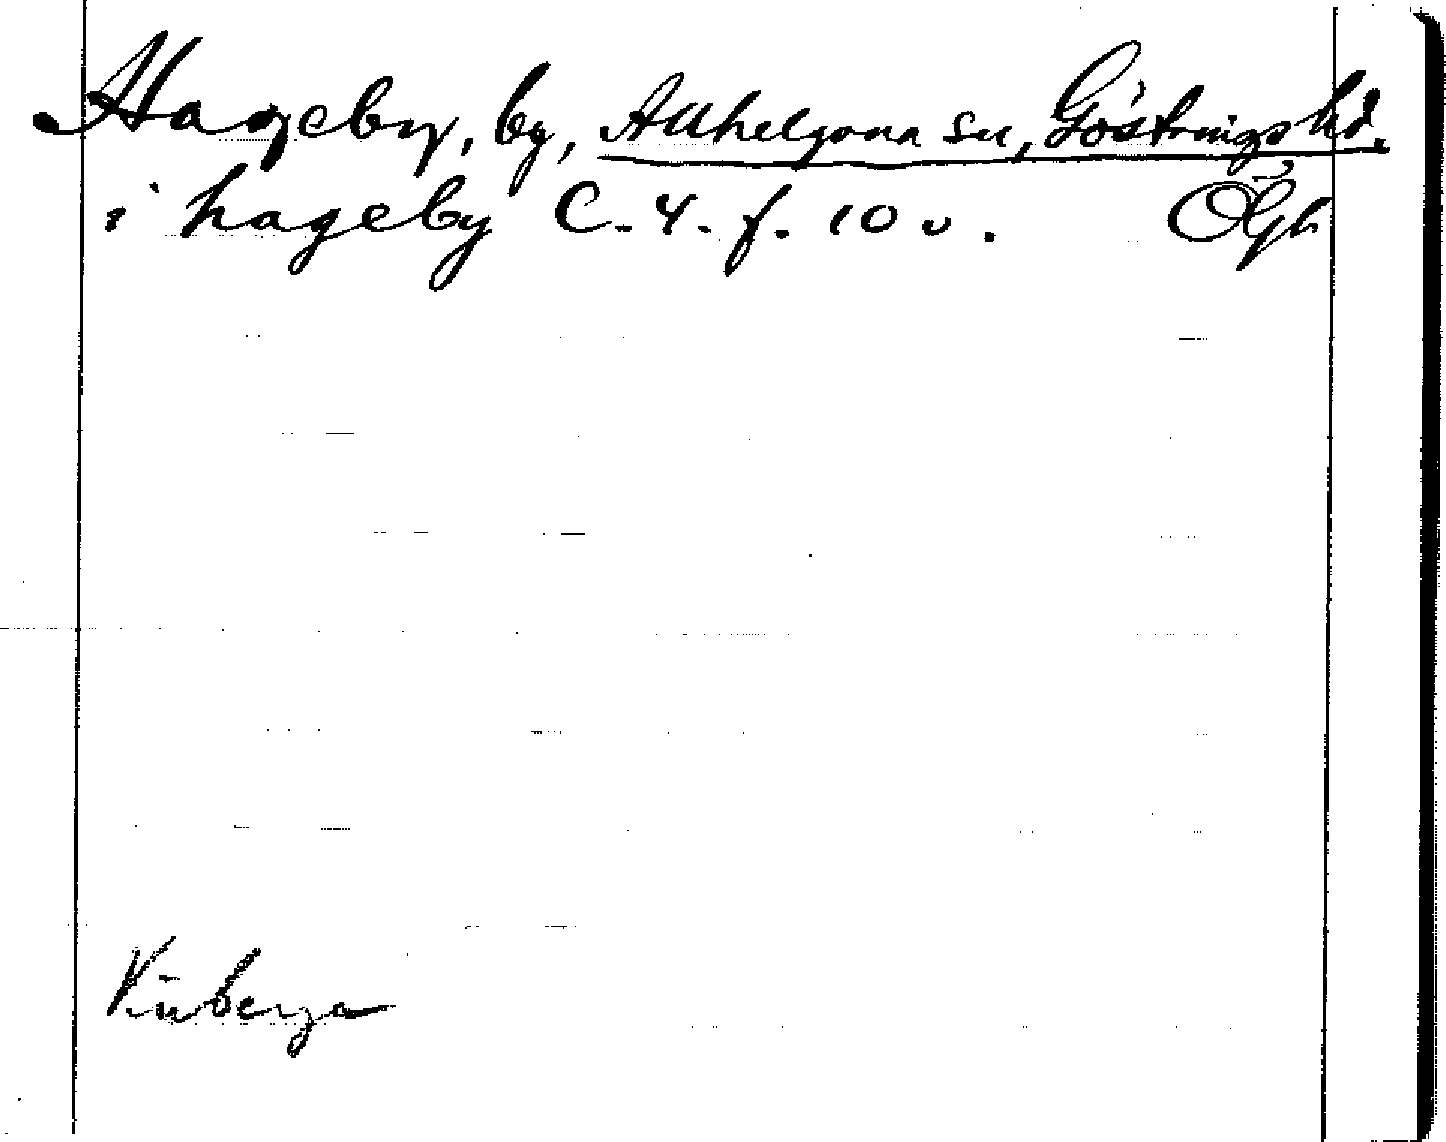 Hageby, by, Allhelgona sn, Göstrings hd.
i hageby C. 4. f. 10 v. Ögl.
Viuberga